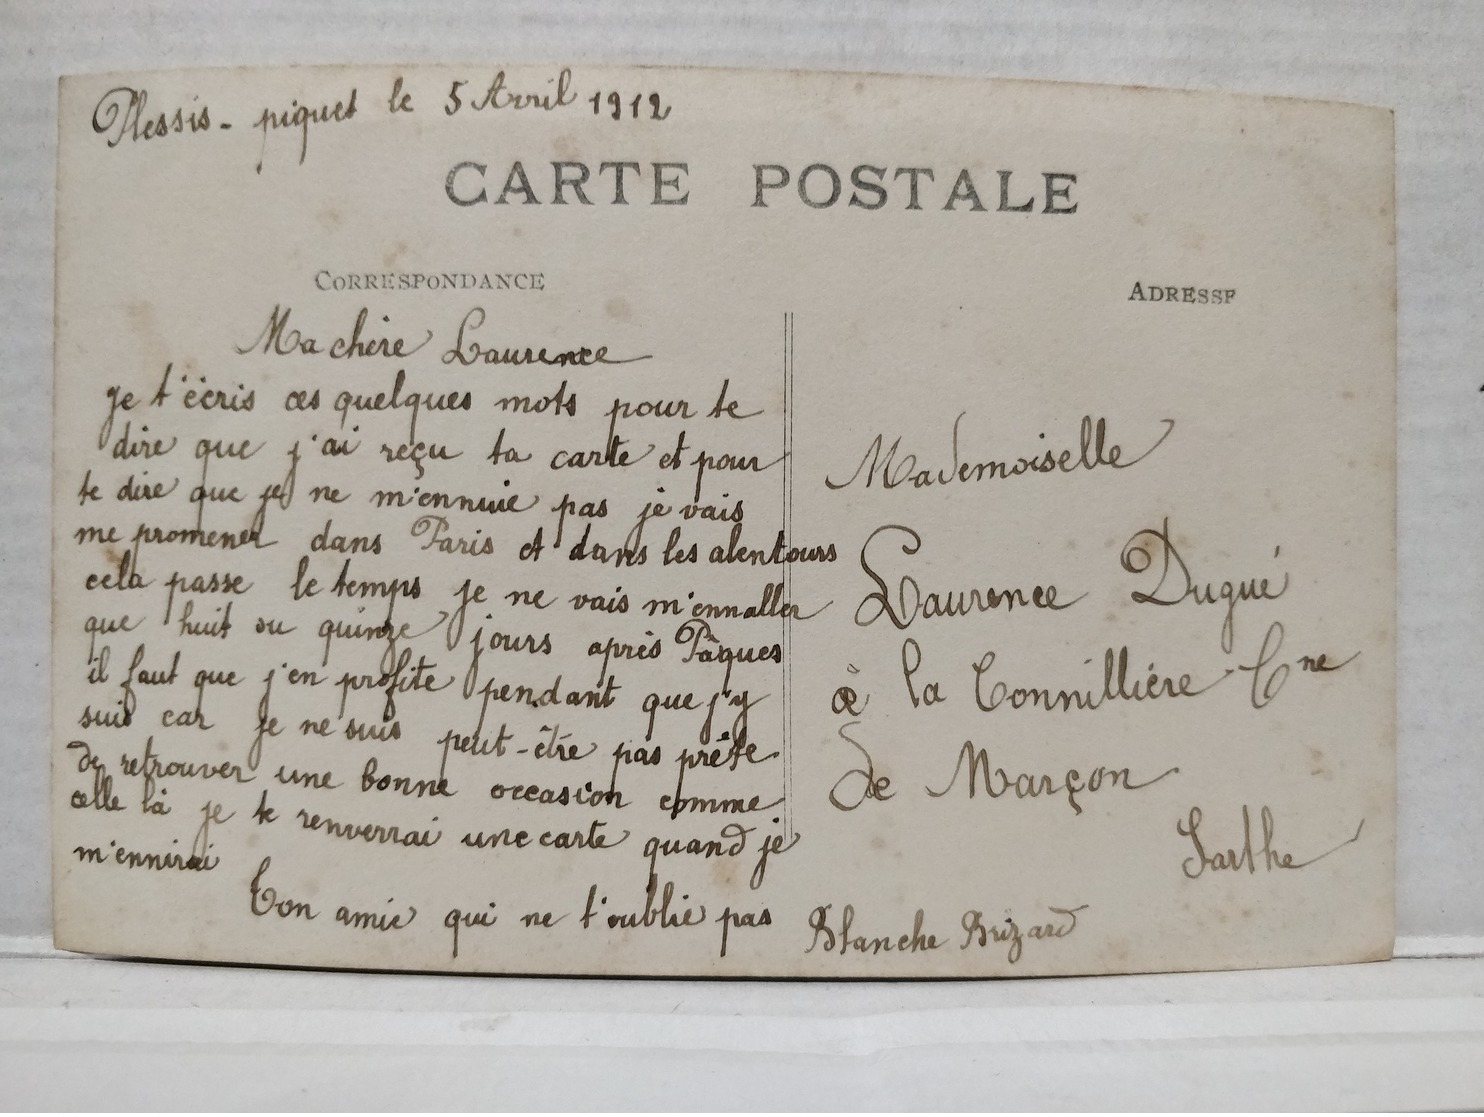 Plessis-piquet le 5 Avril 1912
CARTE POSTALE
CORRESPONDANCE
Ma chère Laurence
je t'écris ces quelques mots pour te
dire que j'ai reçu ta carte et pour
te dire que je ne m'ennuie pas je vais
me promener dans Paris et dans les alentours
cela passe le temps je ne vais m'ennaller
que huit ou quinze jours après Pâques
il faut que j'en profite pendant que j'y
suis car je ne suis peut-être pas prête
de retrouver une bonne occasion comme
celle là je te renverrai une carte quand je
m'ennirai
Ton amie qui ne t'oublie pas
Blanche Brizard
ADRESSE
Mademoiselle
Laurence Dugué
à la Connillière Cne
de Marçon
Sarthe